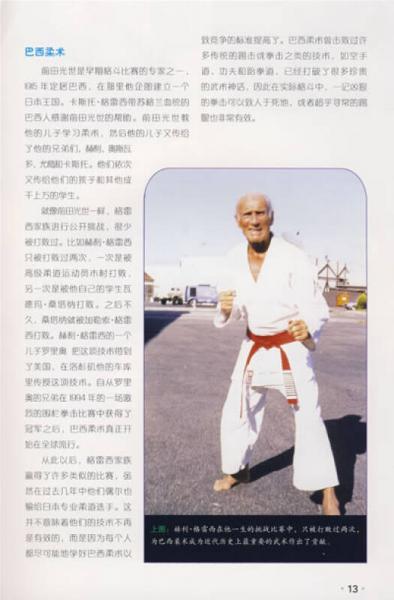 巴西柔术
前田光世是早期格斗比赛的专家之一，
1915 年定居巴西，在那里他企图建立一个
日本王国。卡斯托·格雷西带苏格兰血统的
巴西人感谢前田光世的帮助。前田光世教
他的儿子学习柔术，然后他的儿子又传给
了他的兄弟们，赫利、奥斯瓦
多、尤稽和卡斯托。他们依次
又传给他们的孩子和其他成
千上万的学生。
就像前田光世一样，格雷
西家族进行公开挑战，很少
被打败过。比如赫利·格雷西
只被打败过两次，一次是被
高级柔道运动员木村打败，
另一次是被他自己的学生瓦
德玛·桑塔纳打败。之后不
久，桑塔纳就被加勒索·格雷
西打败。赫利·格雷西的一个
儿子罗里奥 把这项技术带到
了美国，在洛杉矶他的车库
里传授这项技术。自从罗里
奥的兄弟在 1994 年的一场激
烈的围栏拳击比赛中获得了
冠军之后，巴西柔术真正开
始在全球流行。
从此以后，格雷西家族
赢得了许多类似的比赛，虽
然在过去几年中他们偶尔也
输给日本专业柔道选手。这
并不意味着他们的技术不再
是有效的，而是因为每个人
都尽可能地学好巴西柔术以
致竞争的标准提高了。巴西柔术曾击败过许
多传统的踢击或拳击之类的技术，如空手
道、功夫和跆拳道，已经打破了很多珍贵
的武术神话，因此在实际格斗中，一记凶狠
的拳击可以致人于死地，或者超乎寻常的踢
腿也非常有效。
上图：赫利·格雷西在他一生的挑战比赛中，只被打败过两次，
为巴西柔术成为近代历史上最重要的武术作出了贡献。
·13·